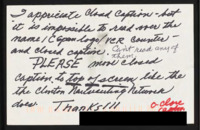 I appreciate Closed Caption - but
it is impossible to read over the
name / logo / VCR Counter -
and closed caption. Can't read any of
them
PLEASE move closed
caption to top of screen like the
the Clinton Network
does. Thanks!!!